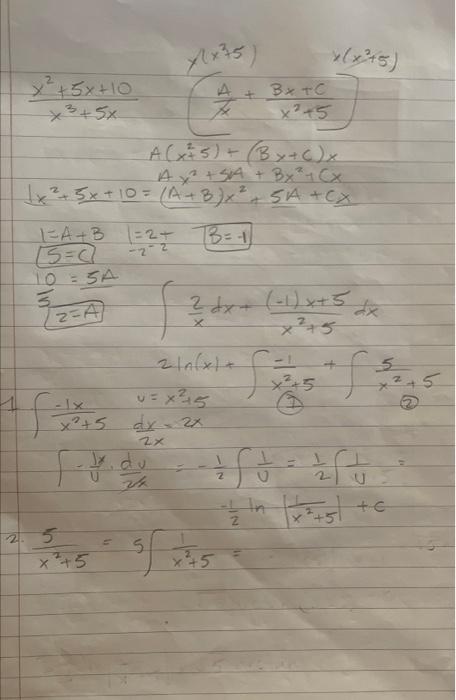 x(x²+5) x(x²+5)
x²+5x+10 / x³+5x [A/x + Bx+C / x²+5]
A(x²+5)+(Bx+C)x
Ax²+5A+Bx²+Cx
1x²+5x+10=(A+B)x²+5A+Cx
1=A+B 1=2+ B=-1
-2 -2
5=C
10=5A
5
2=A
∫ 2/x dx + (-1)x+5 / x²+5 dx
2ln(x)+ ∫ -1 / x²+5 + ∫ 5 / x²+5
① ②
1 ∫ -1x / x²+5 u=x²+5
dx/2x = 2x
∫ -1x/u · du/2x = -1/2 ∫ 1/u = 1/2 ∫ 1/u =
-1/2 ln |1 / x²+5| +c
2. 5 / x²+5 = 5∫ 1 / x²+5 =